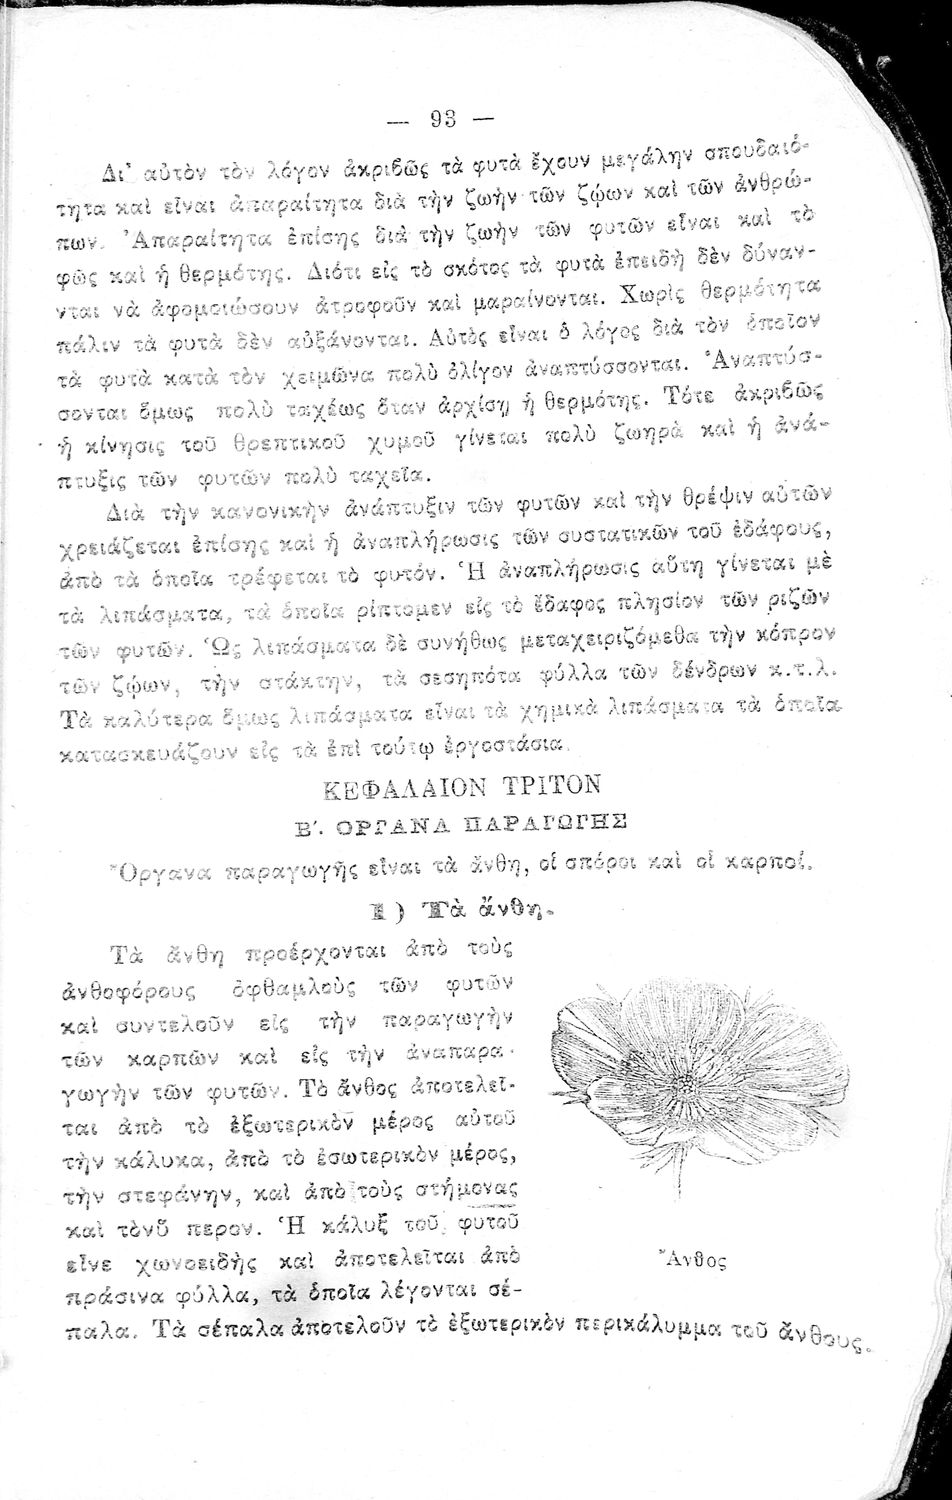 — 93 —
Δι' αὐτὸν τὸν λόγον ἀκριβῶς τὰ φυτὰ ἔχουν μεγάλην σπουδαιό-
τητα καὶ εἶναι ἀπαραίτητα διὰ τὴν ζωὴν τῶν ζῴων καὶ τῶν ἀνθρώ-
πων. Ἀπαραίτητα ἐπίσης διὰ τὴν ζωὴν τῶν φυτῶν εἶναι καὶ τὸ
φῶς καὶ ἡ θερμότης. Διότι εἰς τὸ σκότος τὰ φυτὰ ἐπειδὴ δὲν δύναν-
νται νὰ ἀφομοιώσουν ἀτροφοῦν καὶ μαραίνονται. Χωρὶς θερμότητα
πάλιν τὰ φυτὰ δὲν αὐξάνονται. Αὐτὸς εἶναι ὁ λόγος διὰ τὸν ὁποῖον
τὰ φυτὰ κατὰ τὸν χειμῶνα πολὺ ὀλίγον ἀναπτύσσονται. Ἀναπτύσ-
σονται ὅμως πολὺ ταχέως ὅταν ἀρχίσῃ ἡ θερμότης. Τότε ἀκριβῶς
ἡ κίνησις τοῦ θρεπτικοῦ χυμοῦ γίνεται πολὺ ζωηρὰ καὶ ἡ ἀνά-
πτυξις τῶν φυτῶν πολὺ ταχεῖα.
Διὰ τὴν κανονικὴν ἀνάπτυξιν τῶν φυτῶν καὶ τὴν θρέψιν αὐτῶν
χρειάζεται ἐπίσης καὶ ἡ ἀναπλήρωσις τῶν συστατικῶν τοῦ ἐδάφους,
ἀπὸ τὰ ὁποῖα τρέφεται τὸ φυτόν. Ἡ ἀναπλήρωσις αὕτη γίνεται μὲ
τὰ λιπάσματα, τὰ ὁποῖα ρίπτομεν εἰς τὸ ἔδαφος πλησίον τῶν ριζῶν
τῶν φυτῶν. Ὡς λιπάσματα δὲ συνήθως μεταχειριζόμεθα τὴν κόπρον
τῶν ζῴων, τὴν στάκτην, τὰ σεσηπότα φύλλα τῶν δένδρων κ.τ.λ.
Τὰ καλύτερα ὅμως λιπάσματα εἶναι τὰ χημικὰ λιπάσματα τὰ ὁποῖα
κατασκευάζουν εἰς τὰ ἐπὶ τούτῳ ἐργοστάσια.
ΚΕΦΑΛΑΙΟΝ ΤΡΙΤΟΝ
Β΄. ΟΡΓΑΝΑ ΠΑΡΑΓΩΓΗΣ
Ὄργανα παραγωγῆς εἶναι τὰ ἄνθη, οἱ σπόροι καὶ οἱ καρποί.
1) Τὰ ἄνθη.
Τὰ ἄνθη προέρχονται ἀπὸ τοὺς
ἀνθοφόρους ὀφθαμλοὺς τῶν φυτῶν
καὶ συντελοῦν εἰς τὴν παραγωγὴν
τῶν καρπῶν καὶ εἰς τὴν ἀναπαρα-
γωγὴν τῶν φυτῶν. Τὸ ἄνθος ἀποτελεῖ-
ται ἀπὸ τὸ ἐξωτερικὸν μέρος αὐτοῦ
τὴν κάλυκα, ἀπὸ τὸ ἐσωτερικὸν μέρος,
τὴν στεφάνην, καὶ ἀπὸ τοὺς στήμονας
καὶ τὸνῦ περον. Ἡ κάλυξ τοῦ φυτοῦ
εἶνε χωνοειδὴς καὶ ἀποτελεῖται ἀπὸ
πράσινα φύλλα, τὰ ὁποῖα λέγονται σέ-
παλα. Τὰ σέπαλα ἀποτελοῦν τὸ ἐξωτερικὸν περικάλυμμα τοῦ ἄνθους.
Ἄνθος